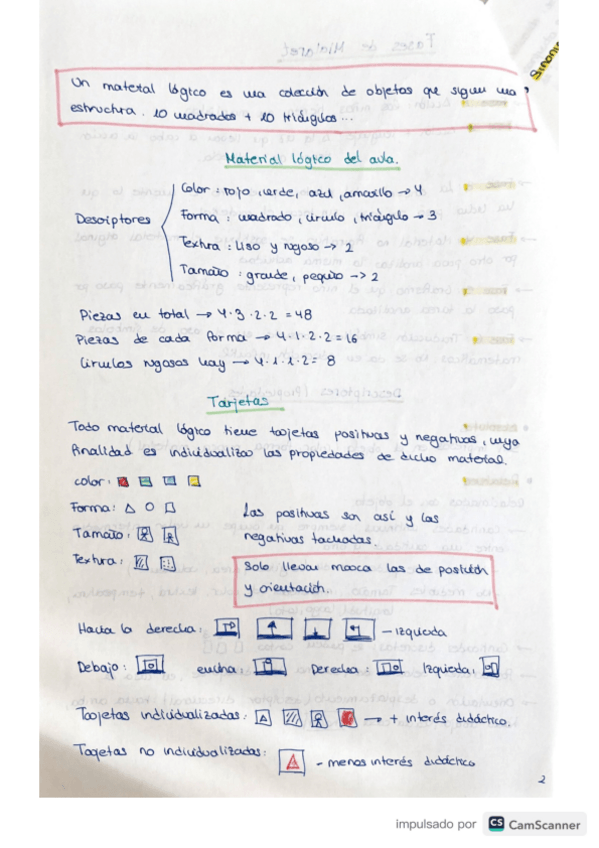 Sinonim
Un material lógico es una colección de objetos que siguen una
estructura. 10 cuadrados + 10 triángulos...
Material lógico del aula.
Descriptores
Color : rojo, verde, azul, amarillo → 4
Forma : cuadrado, círculo, triángulo → 3
Textura : Liso y rugoso → 2
Tamaño : grande, pequeño → 2
Piezas en total → 4·3·2·2 = 48
Piezas de cada forma → 4·1·2·2 = 16
Círculos rugosos hay → 4·1·1·2 = 8
Tarjetas
Todo material lógico tiene tarjetas positivas y negativas, cuya
finalidad es individualizar las propiedades de dicho material.
color:
Forma:
Tamaño:
Textura:
Las positivas son así y las
negativas tachadas.
Solo llevan marca las de posición
y orientación.
Hacia la derecha: — izquierda
Debajo: encima: Derecha: Izquierda:
Tarjetas individualizadas: → + interés didáctico.
Tarjetas no individualizadas: - menos interés didáctico
2
impulsado por CS CamScanner